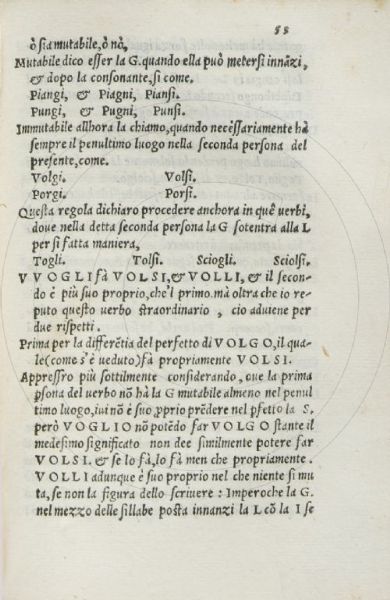 58
ò sia mutabile, ò nò,
Mutabile dico esser la G. quando ella può metersi innāzi,
& dopo la consonante, si come.
Piangi, & Piagni, Piansi.
Pungi, & Pugni, Punsi.
Immutabile allhora la chiamo, quando necessariamente hà
sempre il penultimo luogo nella seconda persona del
presente, come.
Volgi. Volsi.
Porgi. Porsi.
Questa regola dichiaro procedere anchora in quē verbi,
dove nella detta seconda persona la G sotentra alla L
per si fatta maniera,
Togli. Tolsi. Sciogli. Sciolsi.
V VOGLI fà VOLSI, & VOLLI, & il secon-
do è più suo proprio, che'l primo. mà oltra che io re-
puto questo verbo straordinario, cio adviene per
due rispetti.
Prima per la differētia del perfetto di VOLGO, il qua-
le (come s'è veduto) fà propriamente VOLSI.
Appresro più sottilmente considerando, ove la prima
psona del verbo nō hà la G mutabile almeno nel penul
timo luogo, ivi nō è suo pprio prēdere nel pfetto la S.
però VOGLIO nō potēdo far VOLGO stante il
medesimo significato non dee similmente potere far
VOLSI. & se lo fà, lo fà men che propriamente.
VOLLI adunque è suo proprio nel che niente si mu
ta, se non la figura dello scrivere: Imperoche la G.
nel mezzo delle sillabe posta innanzi la L cō la I se